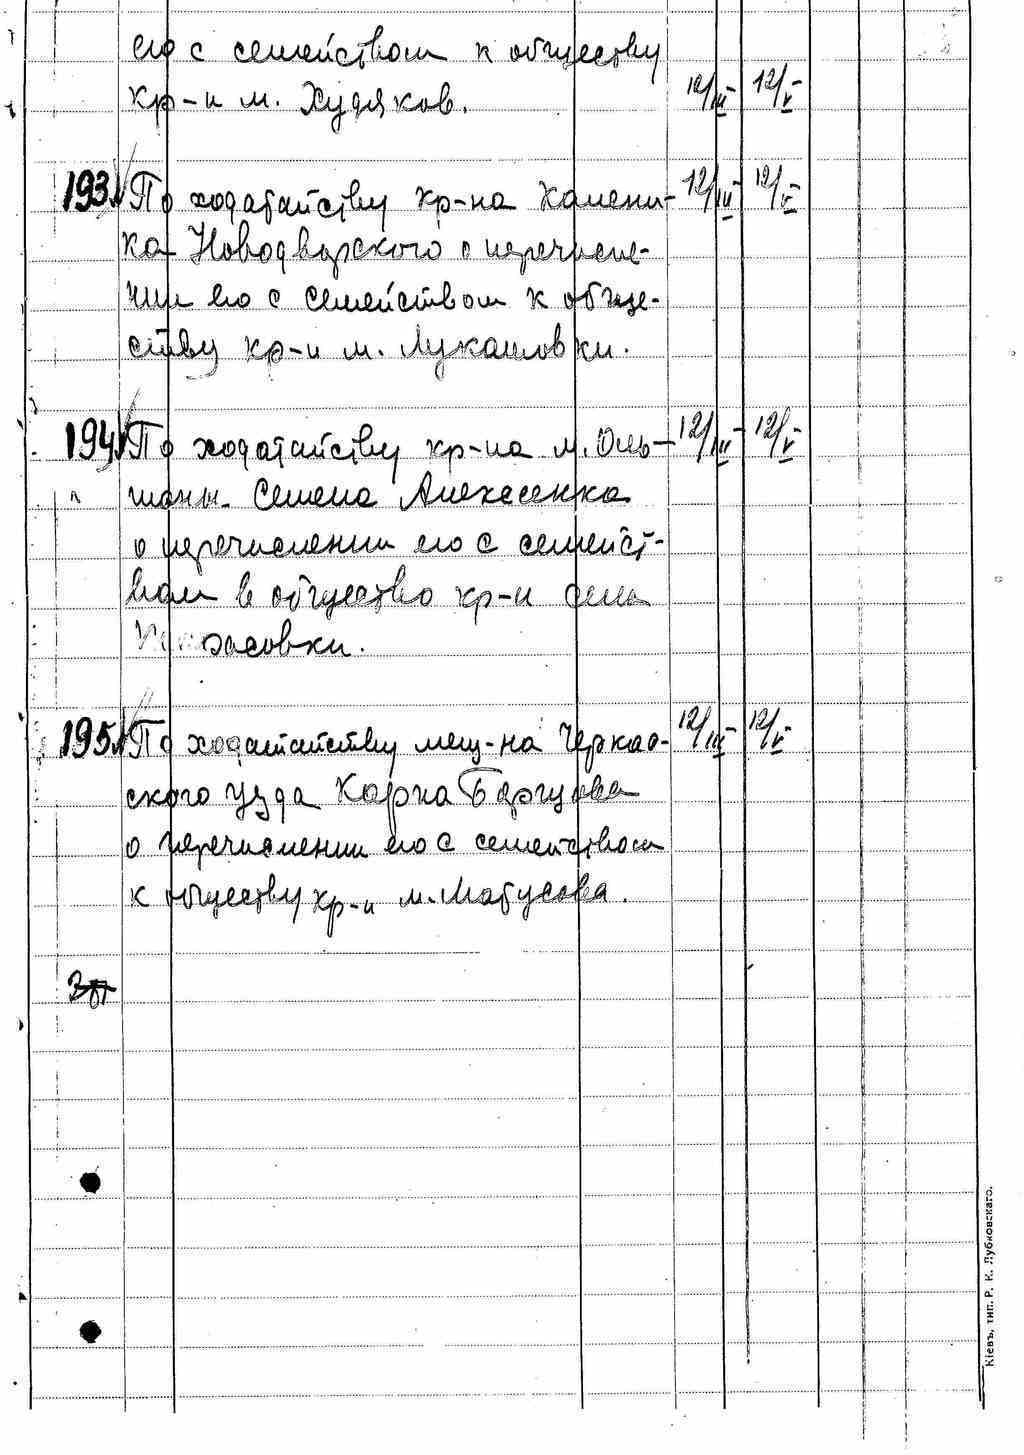 его с семейством к обществу
кр-н м. Худяков. 12/III- 12/V-
193 По ходатайству кр-на Камени- 12/III- 12/V-
ка Новодворского о перечисле-
нии его с семейством к обще-
ству кр-н м. Лукашовки.
194 По ходатайству кр-на м. Оль- 12/III- 12/V-
шаны Семена Алексеенка
о перечислении его с семейст-
вом в общество кр-н села
195 По ходатайству мещ-на Черкас- 12/III- 12/V-
ского уезда Карпа
о перечислении его с семейством
к обществу кр-н м. Матусова.
Кіевъ, тип. Р. К. Лубковскаго.